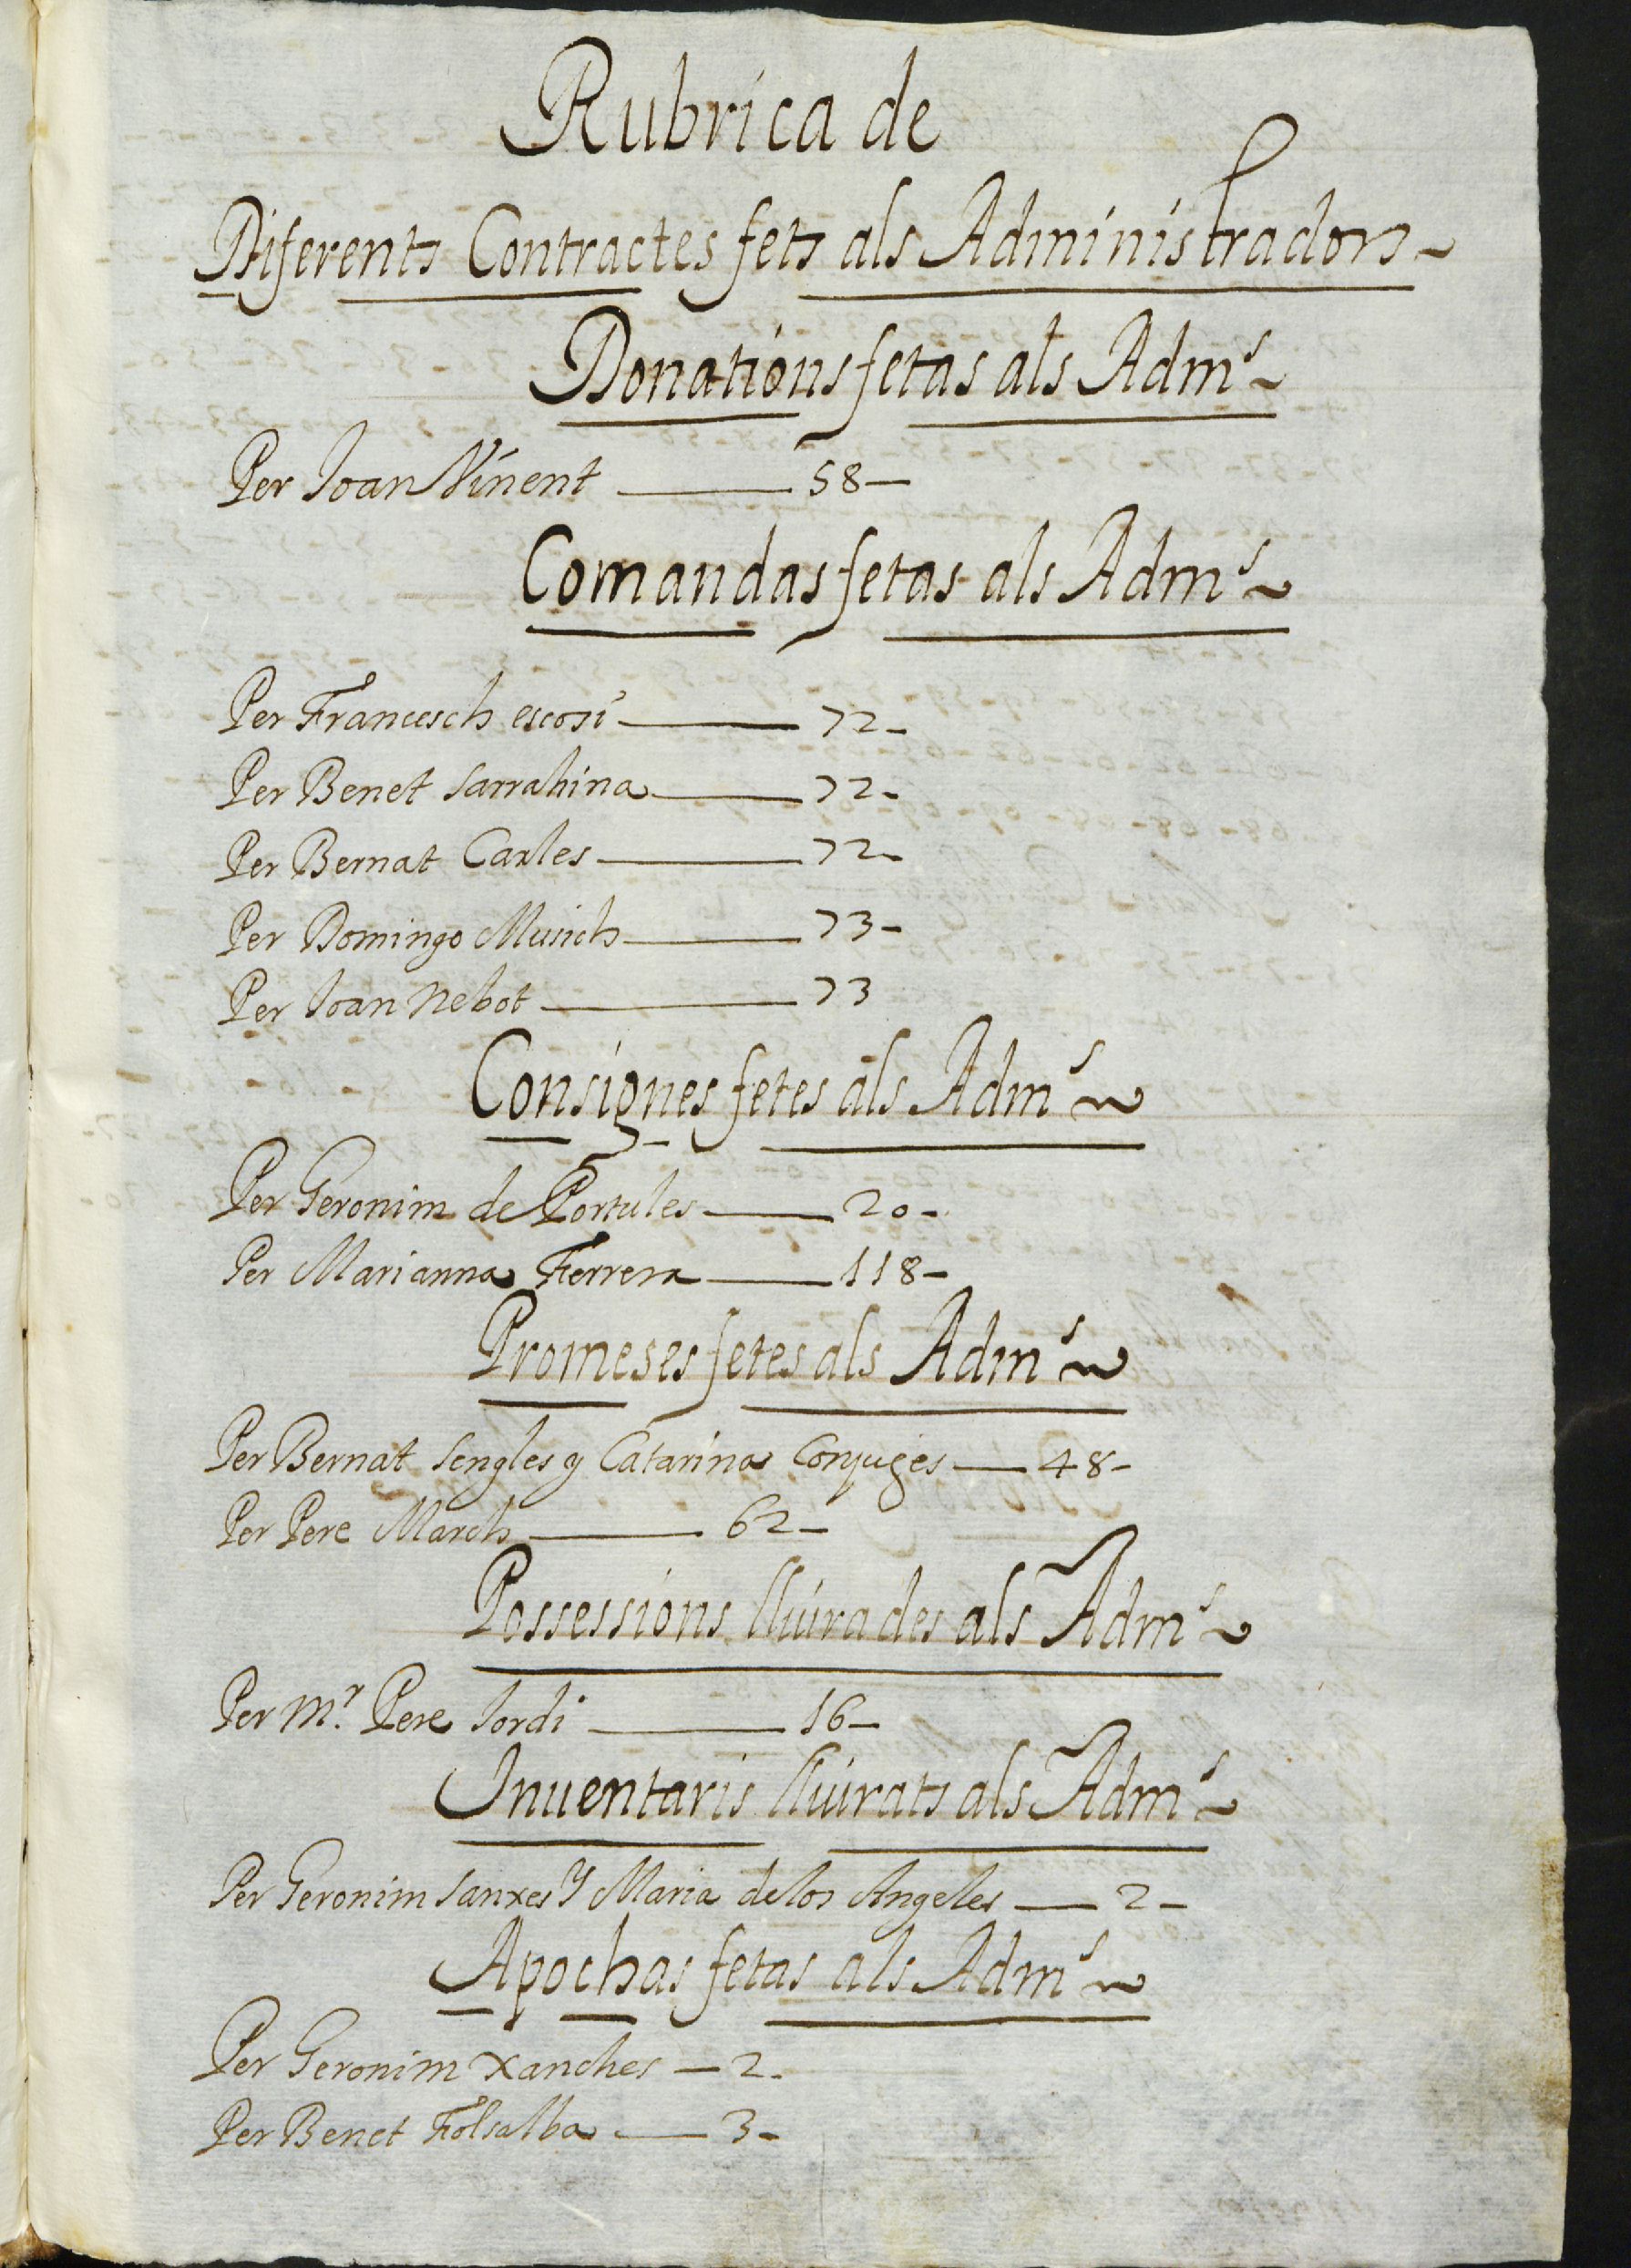 Rubrica de
Diferents Contractes fets als Administradors
Donations fetas als Adm.s
Per Joan Vinent 58
Comandas fetas als Adm.s
Per Francesch escosi 72
Per Benet Sarrahina 72
Per Bernat Carles 72
Per Domingo Musich 73
Per Joan Nebot 73
Consignes fetes als Adm.s
Per Geronim de Portules 20
Per Marianna Ferrera 118
Promeses fetes als Adm.s
Per Bernat Sengles y Catarina Conjuges 48
Per Pere March 62
Possessions lliurades als Adm.s
Per M.r Pere Jordi 16
Inuentaris lliurats als Adm.s
Per Geronim Sanxes y Maria de los Angeles 2
Apochas fetas als Adm.s
Per Geronim Xanches 2
Per Benet Folsalba 3